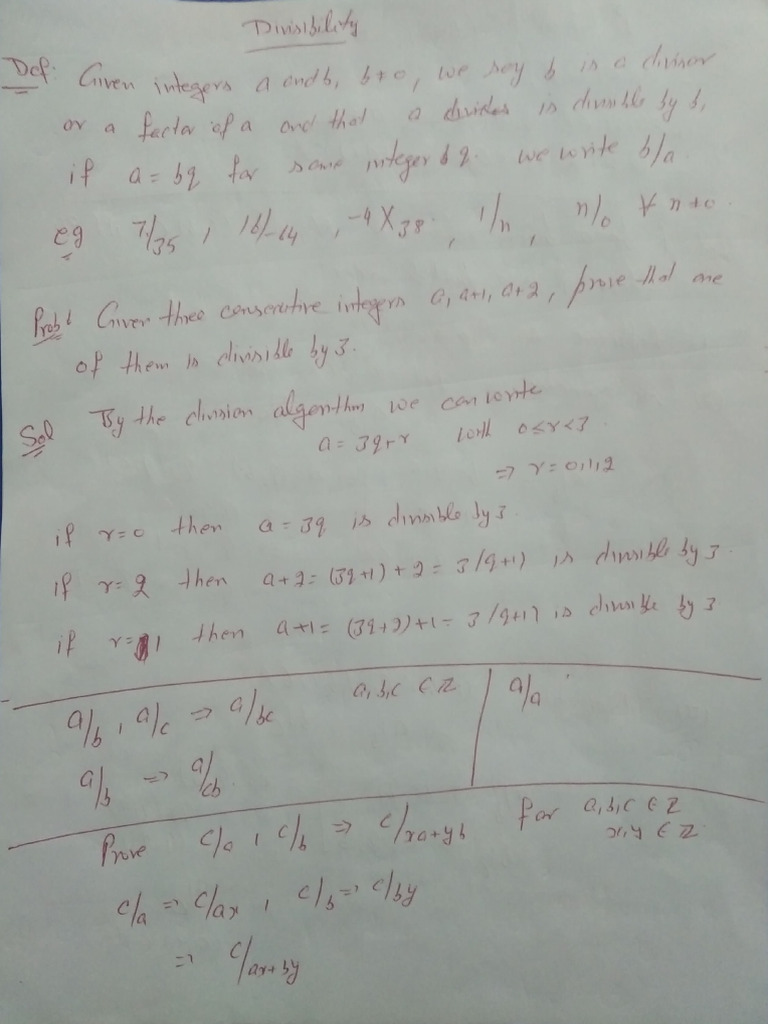 Divisibility
Def: Given integers a and b, b≠0, we say b is a divisor
or a factor of a and that a divides is divisible by b,
if a = bq for some integer q. we write b/a.
eg 7/35, 16/-64, -4 X 38, 1/n, n/0 ∀ n≠0.
Prob! Given three consecutive integers a, a+1, a+2, prove that one
of them is divisible by 3.
Sol By the division algorithm we can write
a = 3q+r with 0≤r<3
⇒ r=0,1,2
if r=0 then a = 3q is divisible by 3.
if r=2 then a+2 = (3q+1)+2 = 3(q+1) is divisible by 3.
if r=1 then a+1 = (3q+2)+1 = 3(q+1) is divisible by 3
a/b, a/c ⇒ a/bc a,b,c ∈ Z a/a
a/b ⇒ a/cb
Prove c/a, c/b ⇒ c/xa+yb for a,b,c ∈ Z
x,y ∈ Z
c/a ⇒ c/ax, c/b ⇒ c/by
⇒ c/ax+by